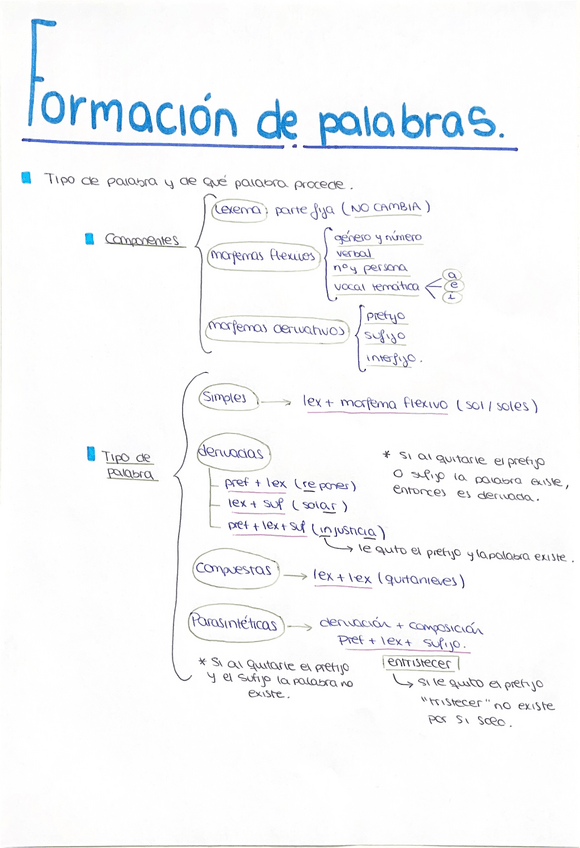 Formación de palabras.
Tipo de palabra y de qué palabra procede.
Componentes
lexema: parte fija (NO CAMBIA)
morfemas flexivos
género y número
verbal
nº y persona
vocal temática
a
e
i
morfemas derivativos
prefijo
sufijo
interfijo.
Tipo de
palabra
Simples → lex + morfema flexivo (sol/soles)
derivadas
pref + lex (reponer)
lex + suf (solar)
pref + lex + suf (injusticia)
→ le quito el prefijo y la palabra existe.
* Si al quitarle el prefijo
o sufijo la palabra existe,
entonces es derivada.
Compuestas → lex + lex (quitanieves)
Parasintéticas → derivación + composición
Pref + lex + sufijo.
entristecer
→ si le quito el prefijo
"tristecer" no existe
por si solo.
* Si al quitarle el prefijo
y el sufijo la palabra no
existe.